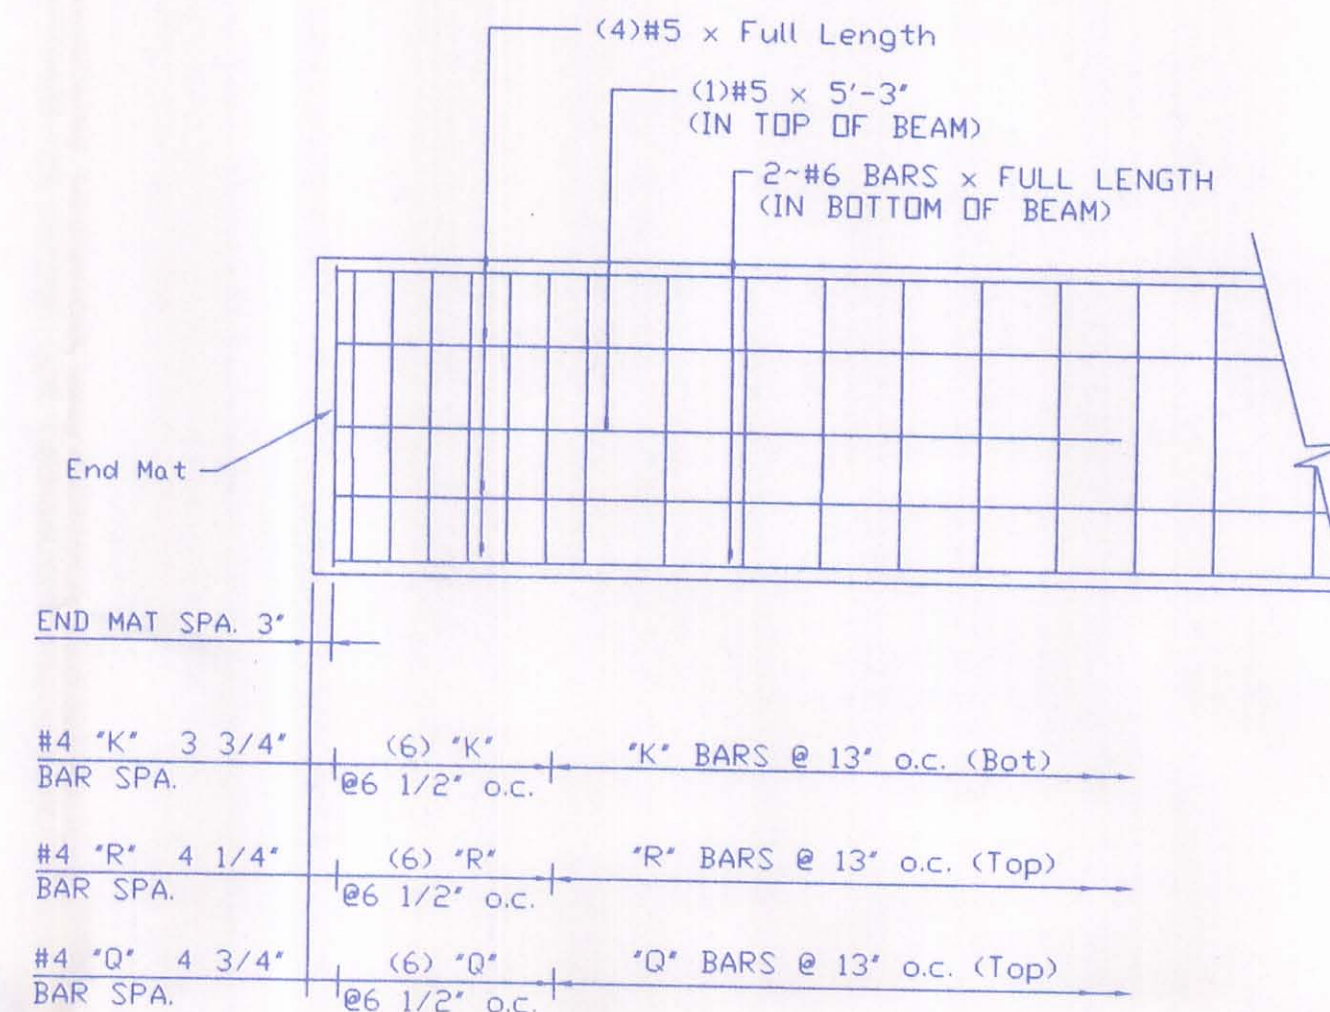 (4)#5 x Full Length
(1)#5 x 5'-3"
(IN TOP OF BEAM)
2~#6 BARS x FULL LENGTH
(IN BOTTOM OF BEAM)
End Mat
END MAT SPA. 3"
#4 "K" 3 3/4"
BAR SPA.
(6) "K"
@6 1/2" o.c.
"K" BARS @ 13" o.c. (Bot)
#4 "R" 4 1/4"
BAR SPA.
(6) "R"
@6 1/2" o.c.
"R" BARS @ 13" o.c. (Top)
#4 "Q" 4 3/4"
BAR SPA.
(6) "Q"
@6 1/2" o.c.
"Q" BARS @ 13" o.c. (Top)